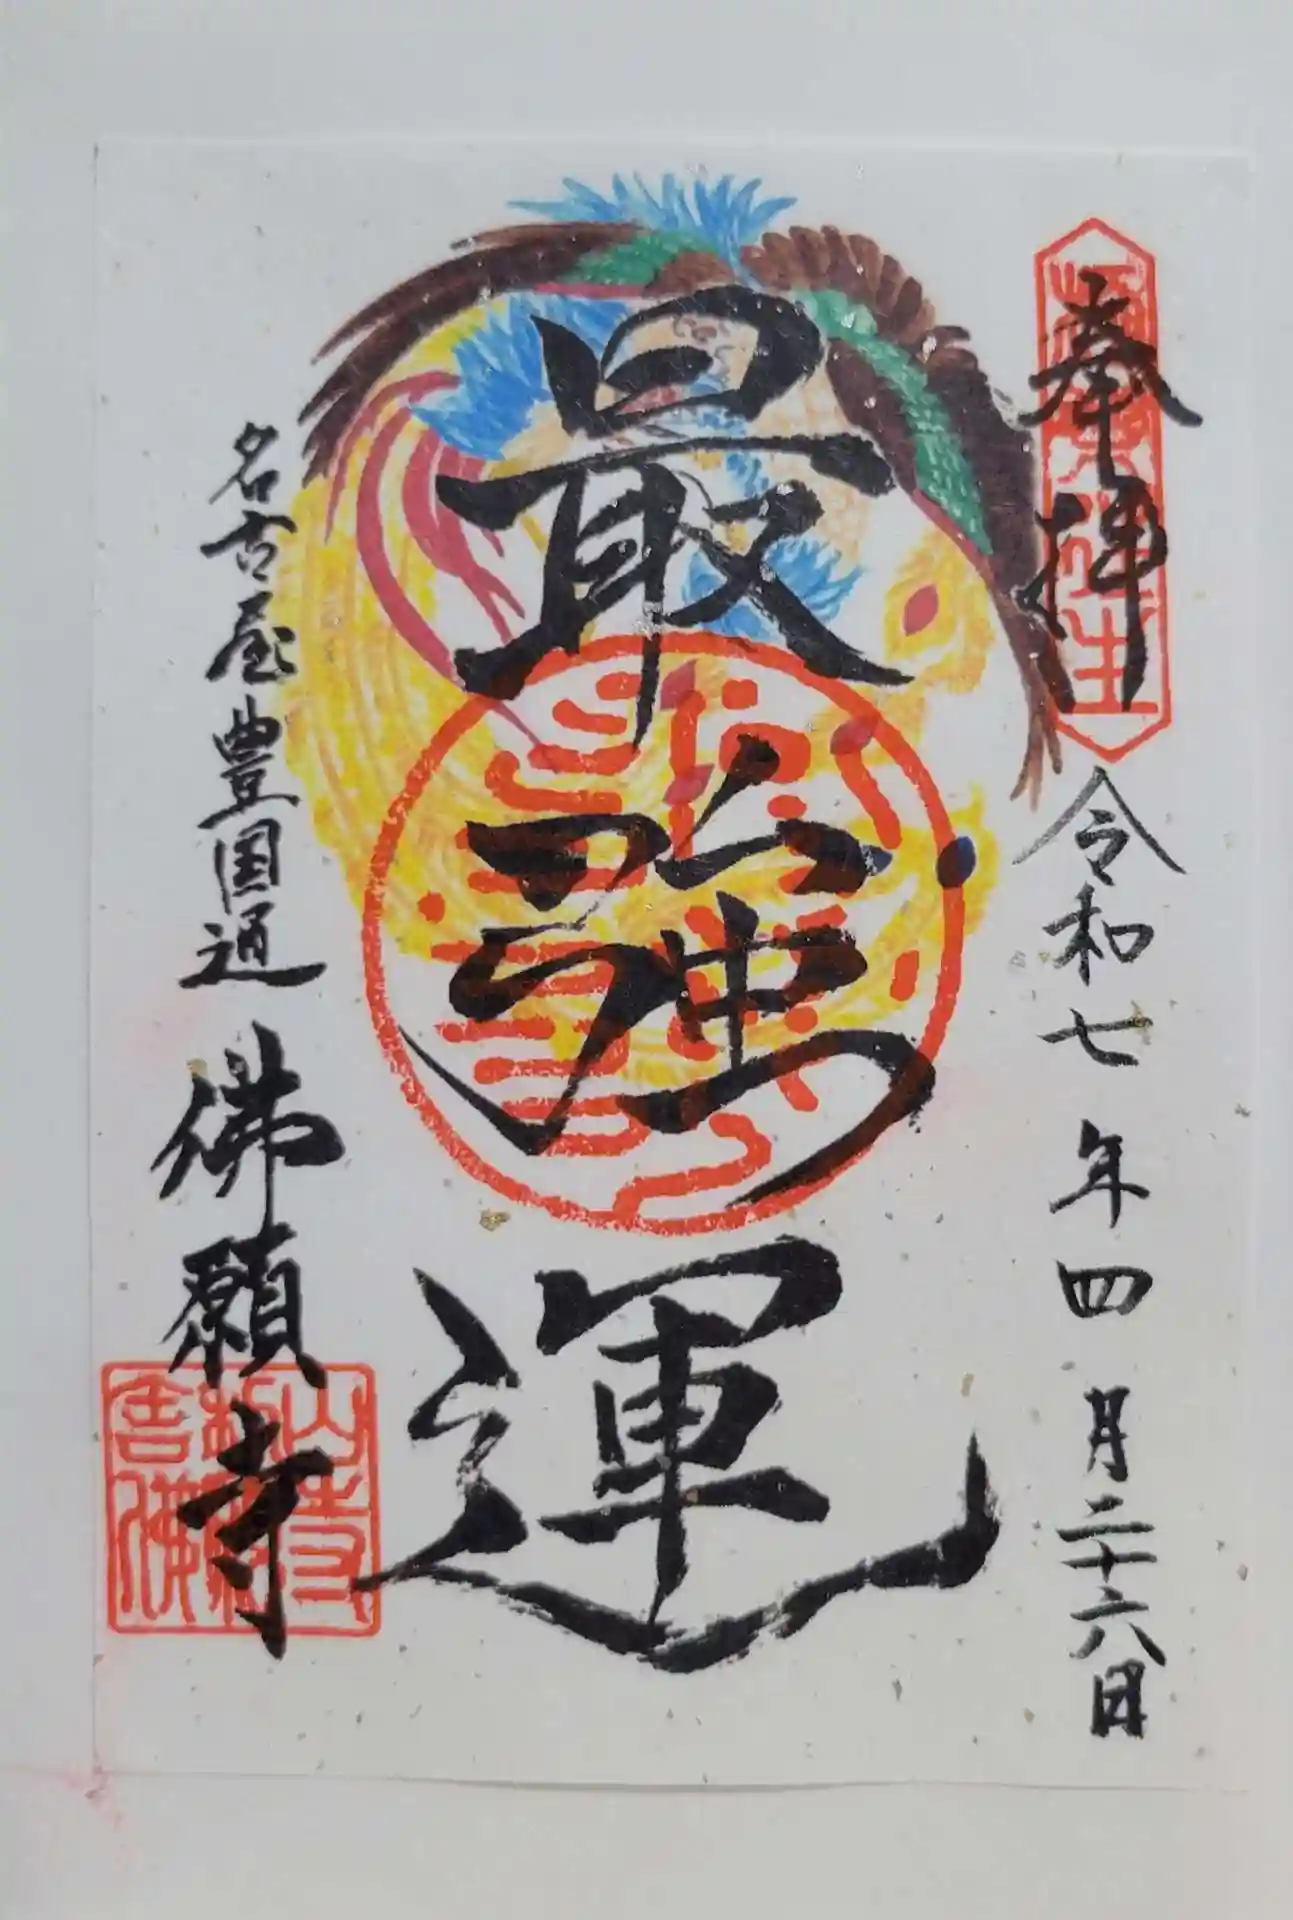 奉拝
令和七年四月二十六日
最強運
名古屋豊国通
佛願寺